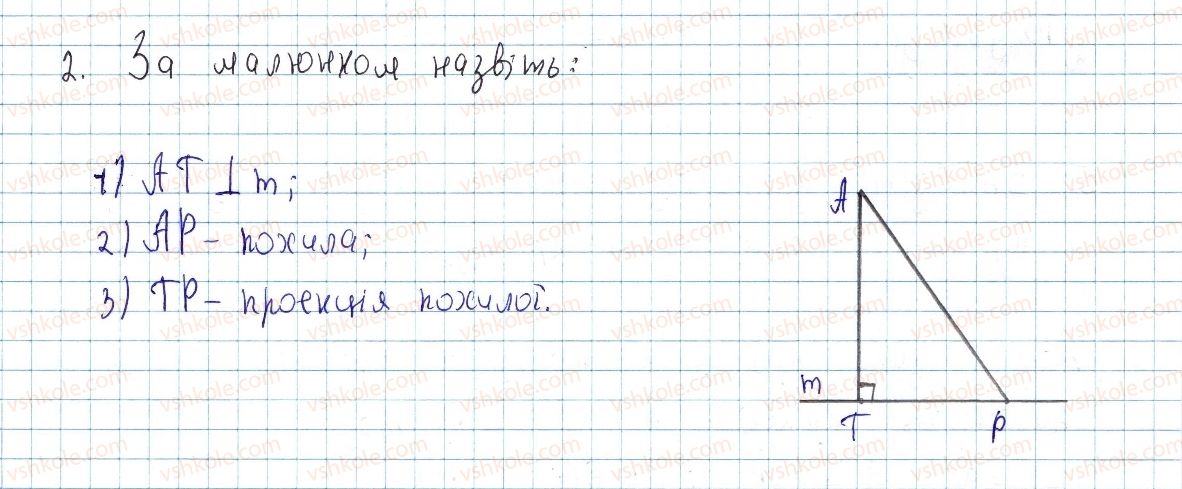 2. За малюнком назвіть:
1) AT ⊥ m;
2) AP - похила;
3) TP - проекція похилої.
A
m
T
P